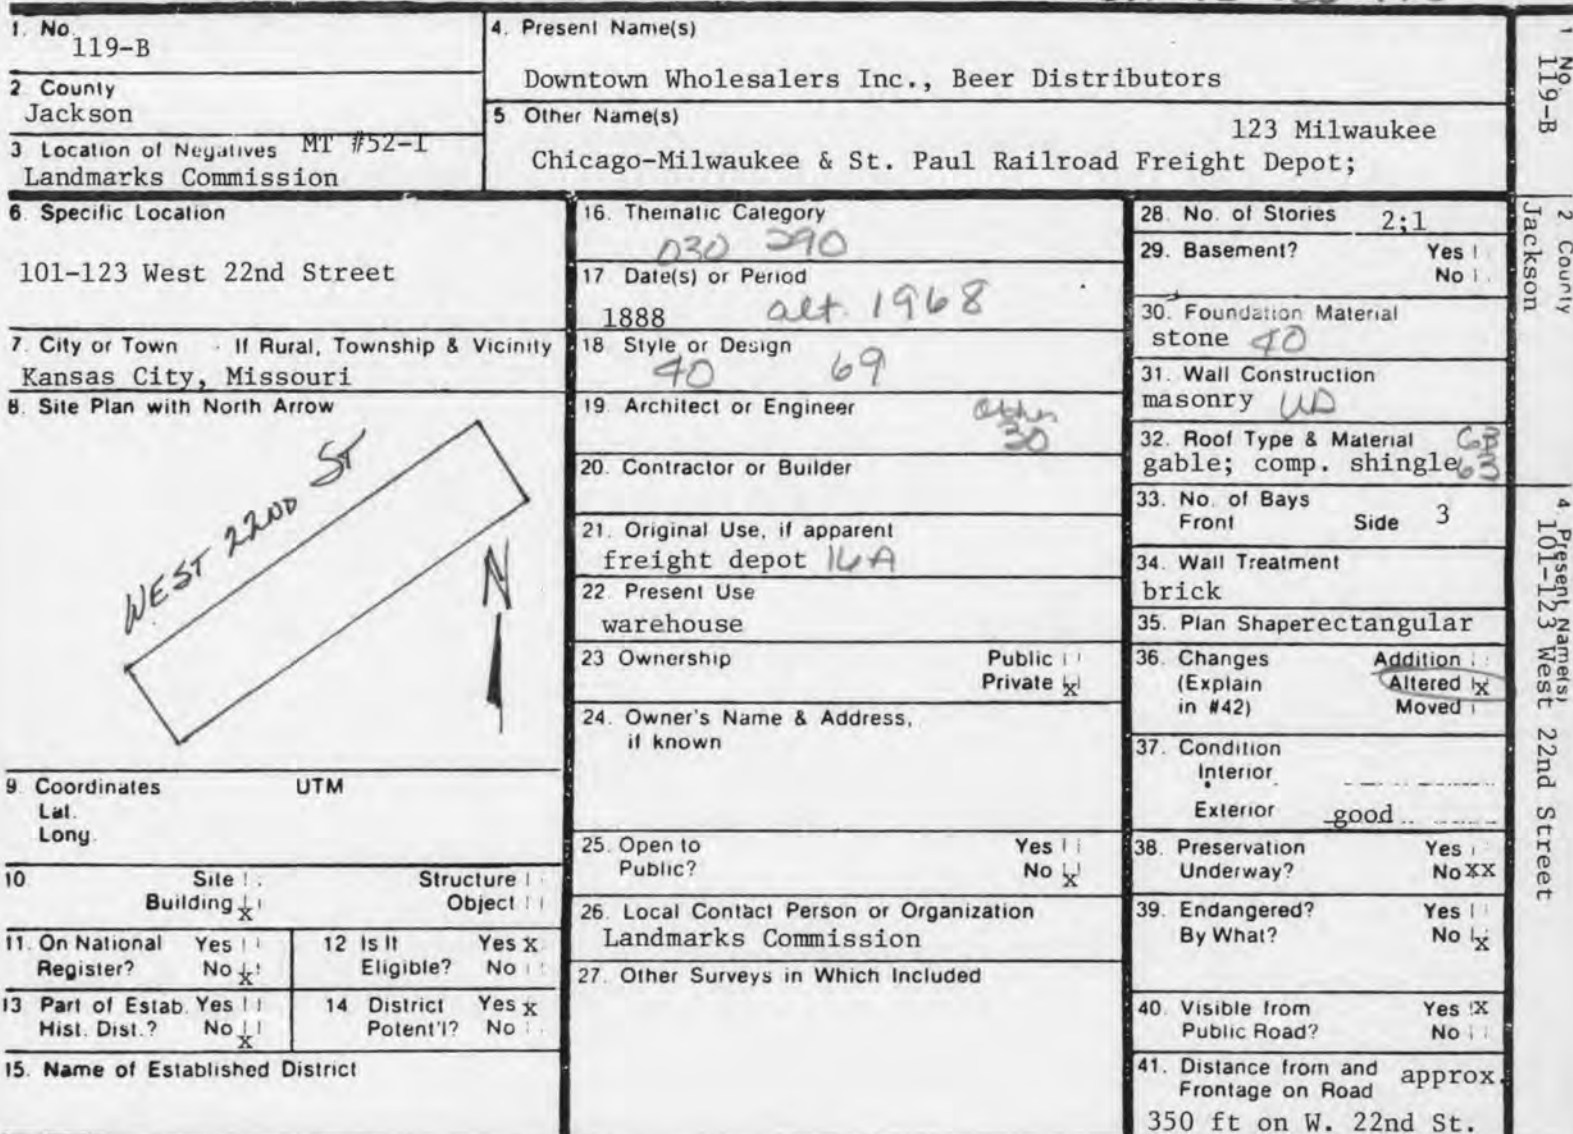 1. No.
119-B
2 County
Jackson
3 Location of Negatives MT #52-I
Landmarks Commission
4. Present Name(s)
Downtown Wholesalers Inc., Beer Distributors
5 Other Name(s)
123 Milwaukee
Chicago-Milwaukee & St. Paul Railroad Freight Depot;
6. Specific Location
101-123 West 22nd Street
7. City or Town If Rural, Township & Vicinity
Kansas City, Missouri
8. Site Plan with North Arrow
WEST 22ND ST
N
9. Coordinates UTM
Lat.
Long.
10 Site Structure
Building x Object
11. On National Yes
Register? No x
12 Is It Yes x
Eligible? No
13 Part of Estab. Yes
Hist. Dist.? No x
14 District Yes x
Potent'l? No
15. Name of Established District
16. Thematic Category
030 290
17 Date(s) or Period
1888 alt. 1968
18 Style or Design
40 69
19. Architect or Engineer Other
30
20. Contractor or Builder
21. Original Use, if apparent
freight depot 16A
22. Present Use
warehouse
23 Ownership Public
Private x
24. Owner's Name & Address,
if known
25. Open to Yes
Public? No x
26. Local Contact Person or Organization
Landmarks Commission
27. Other Surveys in Which Included
28. No. of Stories 2;1
29. Basement? Yes
No
30. Foundation Material
stone 40
31. Wall Construction
masonry UD
32. Roof Type & Material GB
gable; comp. shingle 63
33. No. of Bays
Front Side 3
34. Wall Treatment
brick
35. Plan Shape rectangular
36. Changes Addition
(Explain Altered x
in #42) Moved
37. Condition
Interior
Exterior good
38. Preservation Yes
Underway? No XX
39. Endangered? Yes
By What? No x
40. Visible from Yes X
Public Road? No
41. Distance from and approx.
Frontage on Road
350 ft on W. 22nd St.
1 No.
119-B
2 County
Jackson
4 Present Name(s)
101-123 West 22nd Street